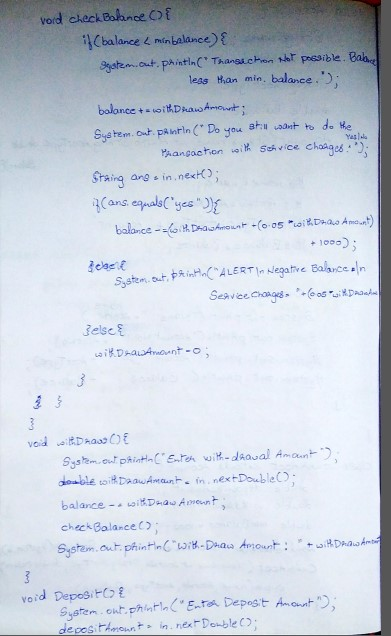 void checkBalance(){
if(balance < minbalance){
System.out.println("Transaction Not possible. Balance
less than min. balance.");
balance += withDrawAmount;
System.out.println("Do you still want to do the
transaction with service charges. Yes/No");
String ans = in.next();
if(ans.equals("yes")){
balance -= (withDrawAmount + (0.05 * withDrawAmount)
+ 1000);
System.out.println("ALERT\n Negative Balance \n
Service Charges = " + (0.05 * withDrawAm
}else{
withDrawAmount = 0;
}
} }
}
void withDraw(){
System.out.println("Enter with-drawal Amount");
double withDrawAmount = in.nextDouble();
balance -= withDrawAmount;
checkBalance();
System.out.println("With-Draw Amount : " + withDrawAmount
}
void Deposit(){
System.out.println("Enter Deposit Amount");
depositAmount = in.nextDouble();